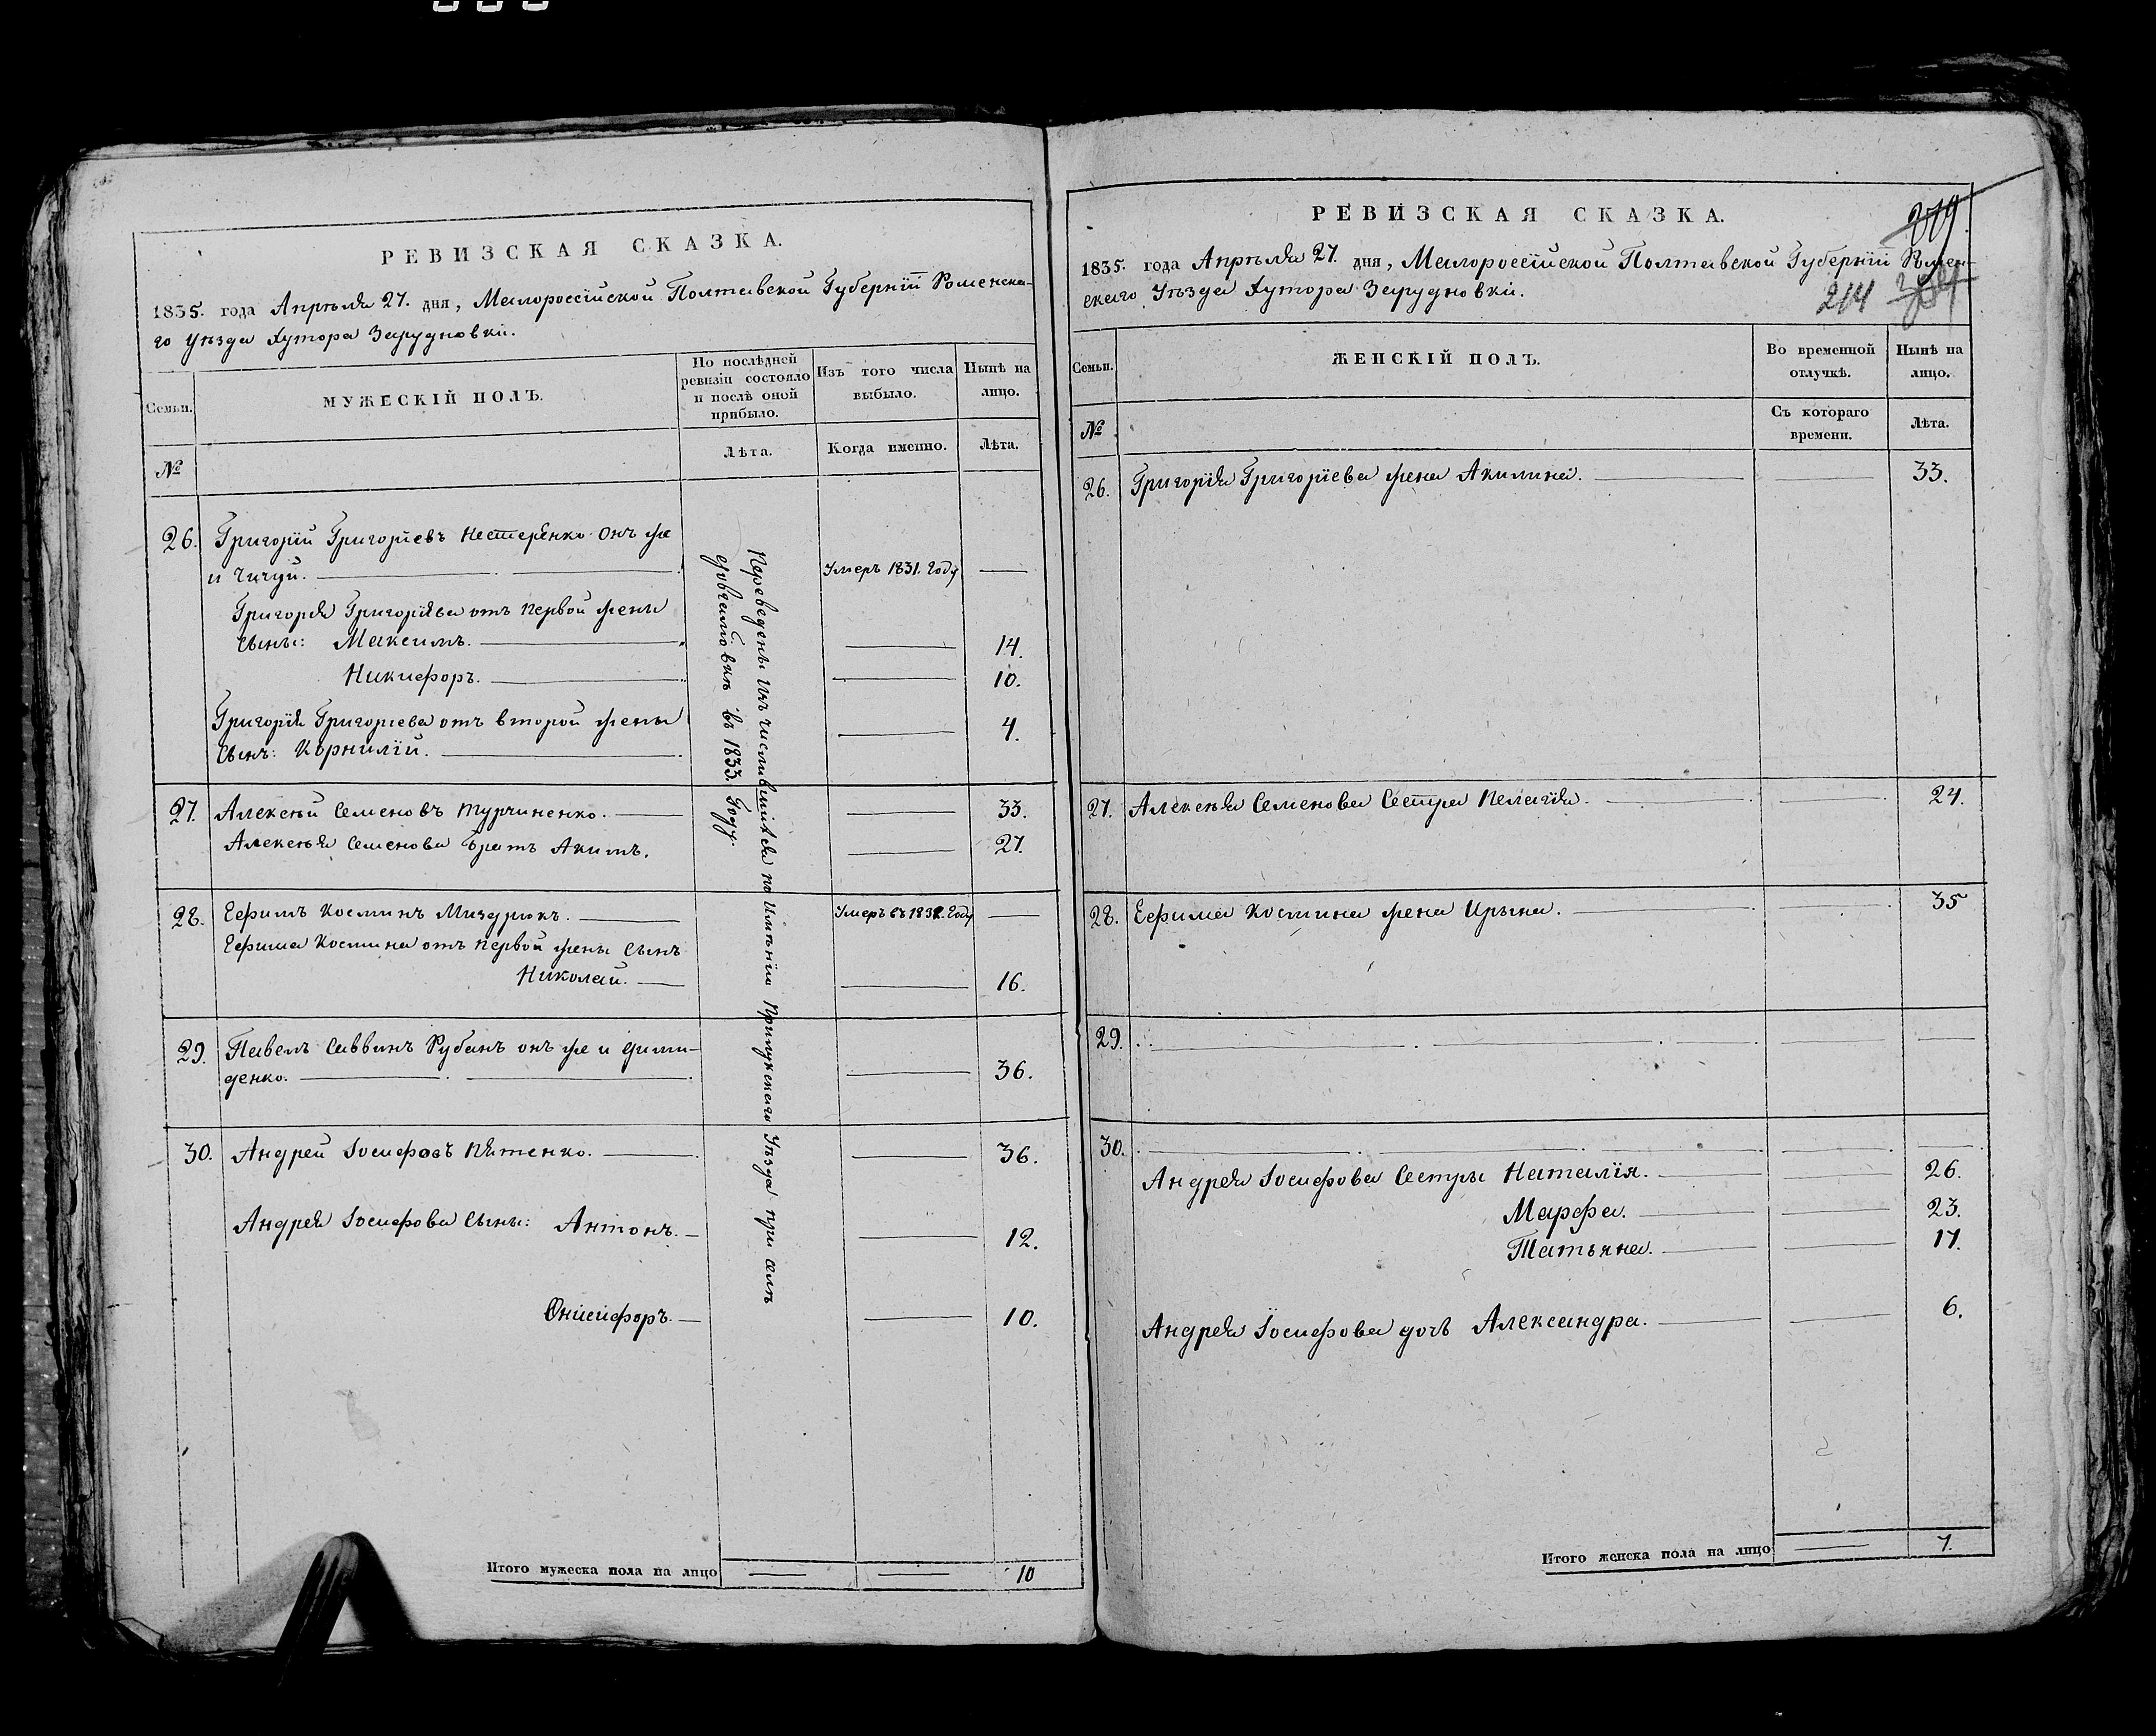 РЕВИЗСКАЯ СКАЗКА.
1835. года Апрѣля 27. дня, Малороссійской Полтавской Губерніи Роменска-
го Уѣзда Хутора Зарудновки.
Семьи.
МУЖЕСКІЙ ПОЛЪ.
По послѣдней
ревизіи состояло
и послѣ оной
прибыло.
Изъ того числа
выбыло.
Нынѣ на
лицо.
№
Лѣта.
Когда именно.
Лѣта.
26. Григорій Григоріевъ Нестеренко онъ же
и Чичуй. Умеръ 1831. Году
Григорія Григоріева отъ первой жены
Сыны: Максимъ. 14.
Никифоръ. 10.
Григорія Григоріева отъ второй жены
Сынъ: Корнилій. 4.
27. Алексѣй Семеновъ Турчиненко. 33.
Алексѣя Семенова братъ Акимъ. 27.
28. Ефимъ Косминъ Миздрюкъ. Умеръ въ Году
Ефима Космина отъ первой жены Сынъ
Николай. 16.
29. Павелъ Саввинъ Рубанъ онъ же и
денко. 36.
30. Андрей Іосифовъ Пятенко. 36.
Андрея Іосифова Сыны: Антонъ. 12.
Онисифоръ. 10.
Переведены изъ числившихся по Имѣнію Прилуцкаго Уѣзда при селѣ
въ 1833. Году.
Итого мужеска пола на лицо 10
РЕВИЗСКАЯ СКАЗКА.
1835. года Апрѣля 27. дня, Малороссійской Полтавской Губерніи Ромен-
скаго Уѣзда Хутора Зарудновки.
214
Семьи.
ЖЕНСКІЙ ПОЛЪ.
Во временной
отлучкѣ.
Нынѣ на
лицо.
№
Съ котораго
времени.
Лѣта.
26. Григорія Григоріева жена Акилина. 33.
27. Алексѣя Семенова Сестра Пелагія. 24.
28. Ефима Космина жена Ирына. 35
29.
30.
Андрея Іосифова Сестры Наталія. 26.
Марфа. 23.
Татьяна. 17.
Андрея Іосифова дочь Александра. 6.
Итого женска пола на лицо 7.